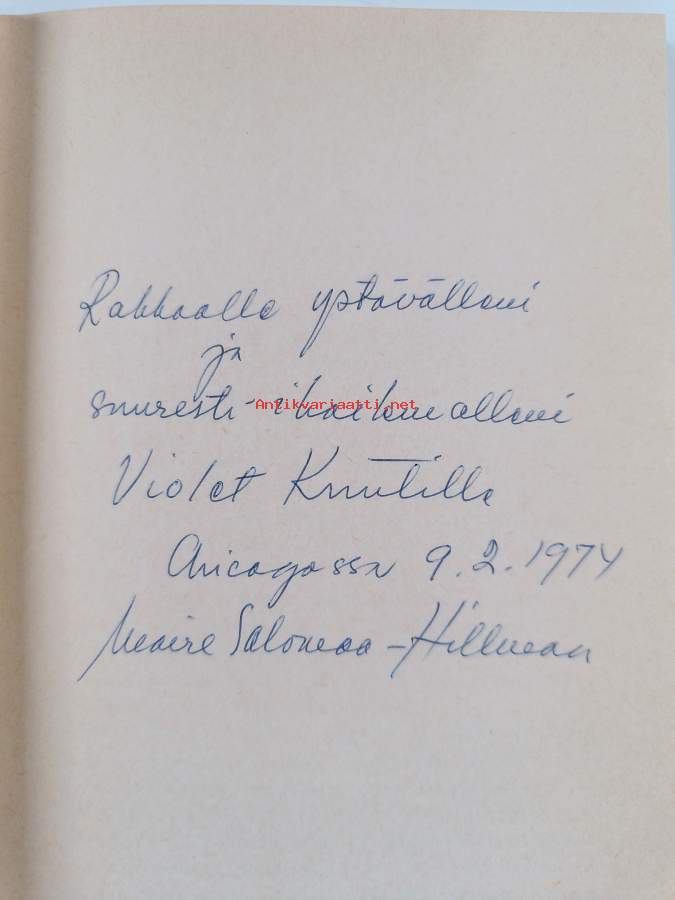 Rakkaalle ystävälleni
ja
suuresti ihailemalleni
Antikvariaatti.net
Violet Knutille
Chicagossa 9.2.1974
Maire Salomaa-Hillman